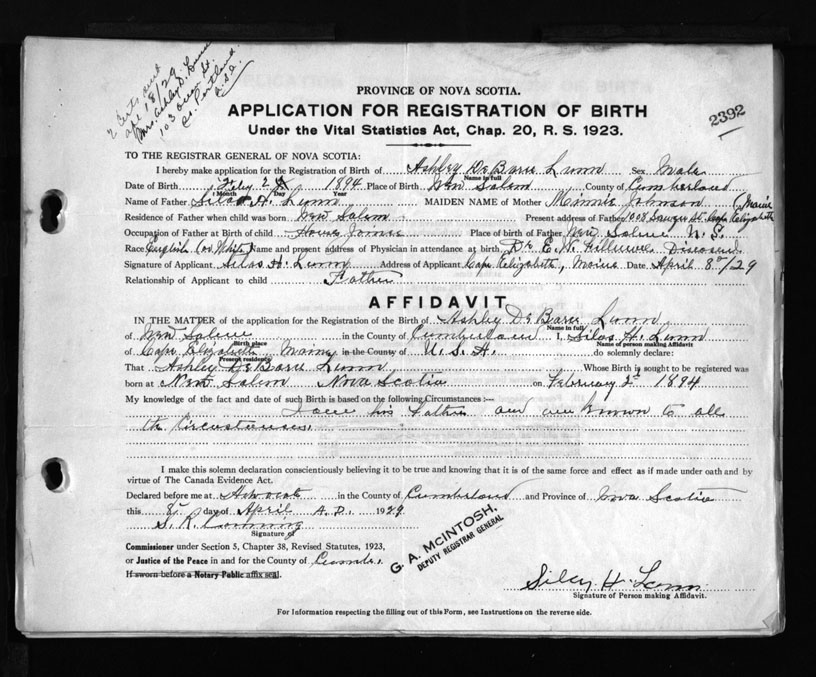 2 Certs and
Apl 18/29
Mrs. Ashley D. Lunn
103 St.
So. Portland
U.S.A.
PROVINCE OF NOVA SCOTIA.
APPLICATION FOR REGISTRATION OF BIRTH
2392
Under the Vital Statistics Act, Chap. 20, R. S. 1923.
TO THE REGISTRAR GENERAL OF NOVA SCOTIA:
I hereby make application for the Registration of Birth of Ashley DeBarre Lunn Sex Male
Name in full
Date of Birth Feby 2 1894 Place of Birth New Salem County of Cumberland
Month Day Year
Name of Father Silas H. Lunn MAIDEN NAME of Mother Minnie Johnson
Residence of Father when child was born New Salem Present address of Father 1008 Sawyer St. Cape Elizabeth Maine
Occupation of Father at Birth of child House Joiner Place of birth of Father New Salem N. S.
Race English (or White) Name and present address of Physician in attendance at birth Dr E. W. Deceased
Signature of Applicant Silas H. Lunn Address of Applicant Cape Elizabeth, Maine Date April 8th/29
Relationship of Applicant to child Father
AFFIDAVIT
IN THE MATTER of the application for the Registration of the Birth of Ashley DeBarre Lunn
Name in full
of New Salem in the County of Cumberland I, Silas H. Lunn
Birth place Name of person making Affidavit
of Cape Elizabeth Maine, in the County of U. S. A. do solemnly declare:
Present residence
That Ashley DeBarre Lunn Whose Birth is sought to be registered was
born at New Salem Nova Scotia on February 2d 1894
My knowledge of the fact and date of such Birth is based on the following Circumstances:—
I am his Father and am known to all
the Circumstances.
I make this solemn declaration conscientiously believing it to be true and knowing that it is of the same force and effect as if made under oath and by
virtue of The Canada Evidence Act.
Declared before me at Advocate in the County of Cumberland and Province of Nova Scotia
this 8th day of April A. D. 1929
S. R.
Signature of
Commissioner under Section 5, Chapter 38, Revised Statutes, 1923,
or Justice of the Peace in and for the County of Cumb.
If sworn before a Notary Public affix seal.
G. A. McINTOSH,
DEPUTY REGISTRAR GENERAL
Silas H. Lunn
Signature of Person making Affidavit.
For Information respecting the filling out of this Form, see Instructions on the reverse side.